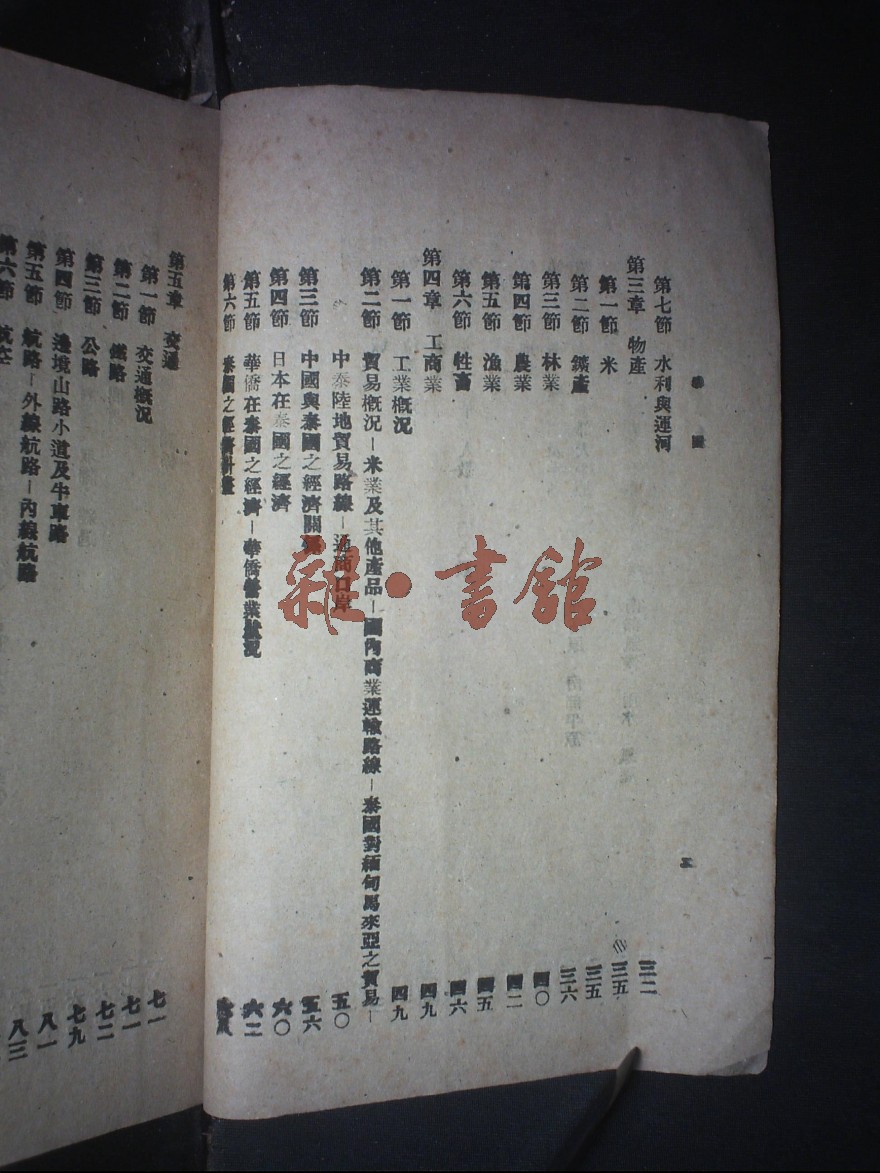 泰國
第七節 水利與運河 三二
第三章 物產 三五
第一節 米 三五
第二節 鑛產 三六
第三節 林業 四〇
第四節 農業 四二
第五節 漁業 四五
第六節 牲畜 四六
第四章 工商業 四九
第一節 工業概況 四九
第二節 貿易概況—米業及其他產品—國內商業運輸路線—泰國對緬甸馬來亞之貿易—
中泰陸地貿易路線—通商口岸 五〇
第三節 中國與泰國之經濟關係 五六
第四節 日本在泰國之經濟 六〇
第五節 華僑在泰國之經濟—華僑營業狀況 六二
第六節 泰國之經濟計畫
第五章 交通 七一
第一節 交通概況 七一
第二節 鐵路 七二
第三節 公路 七九
第四節 邊境山路小道及牛車路 八一
第五節 航路—外線航路—內線航路 八三
第六節 航空
雜·書館